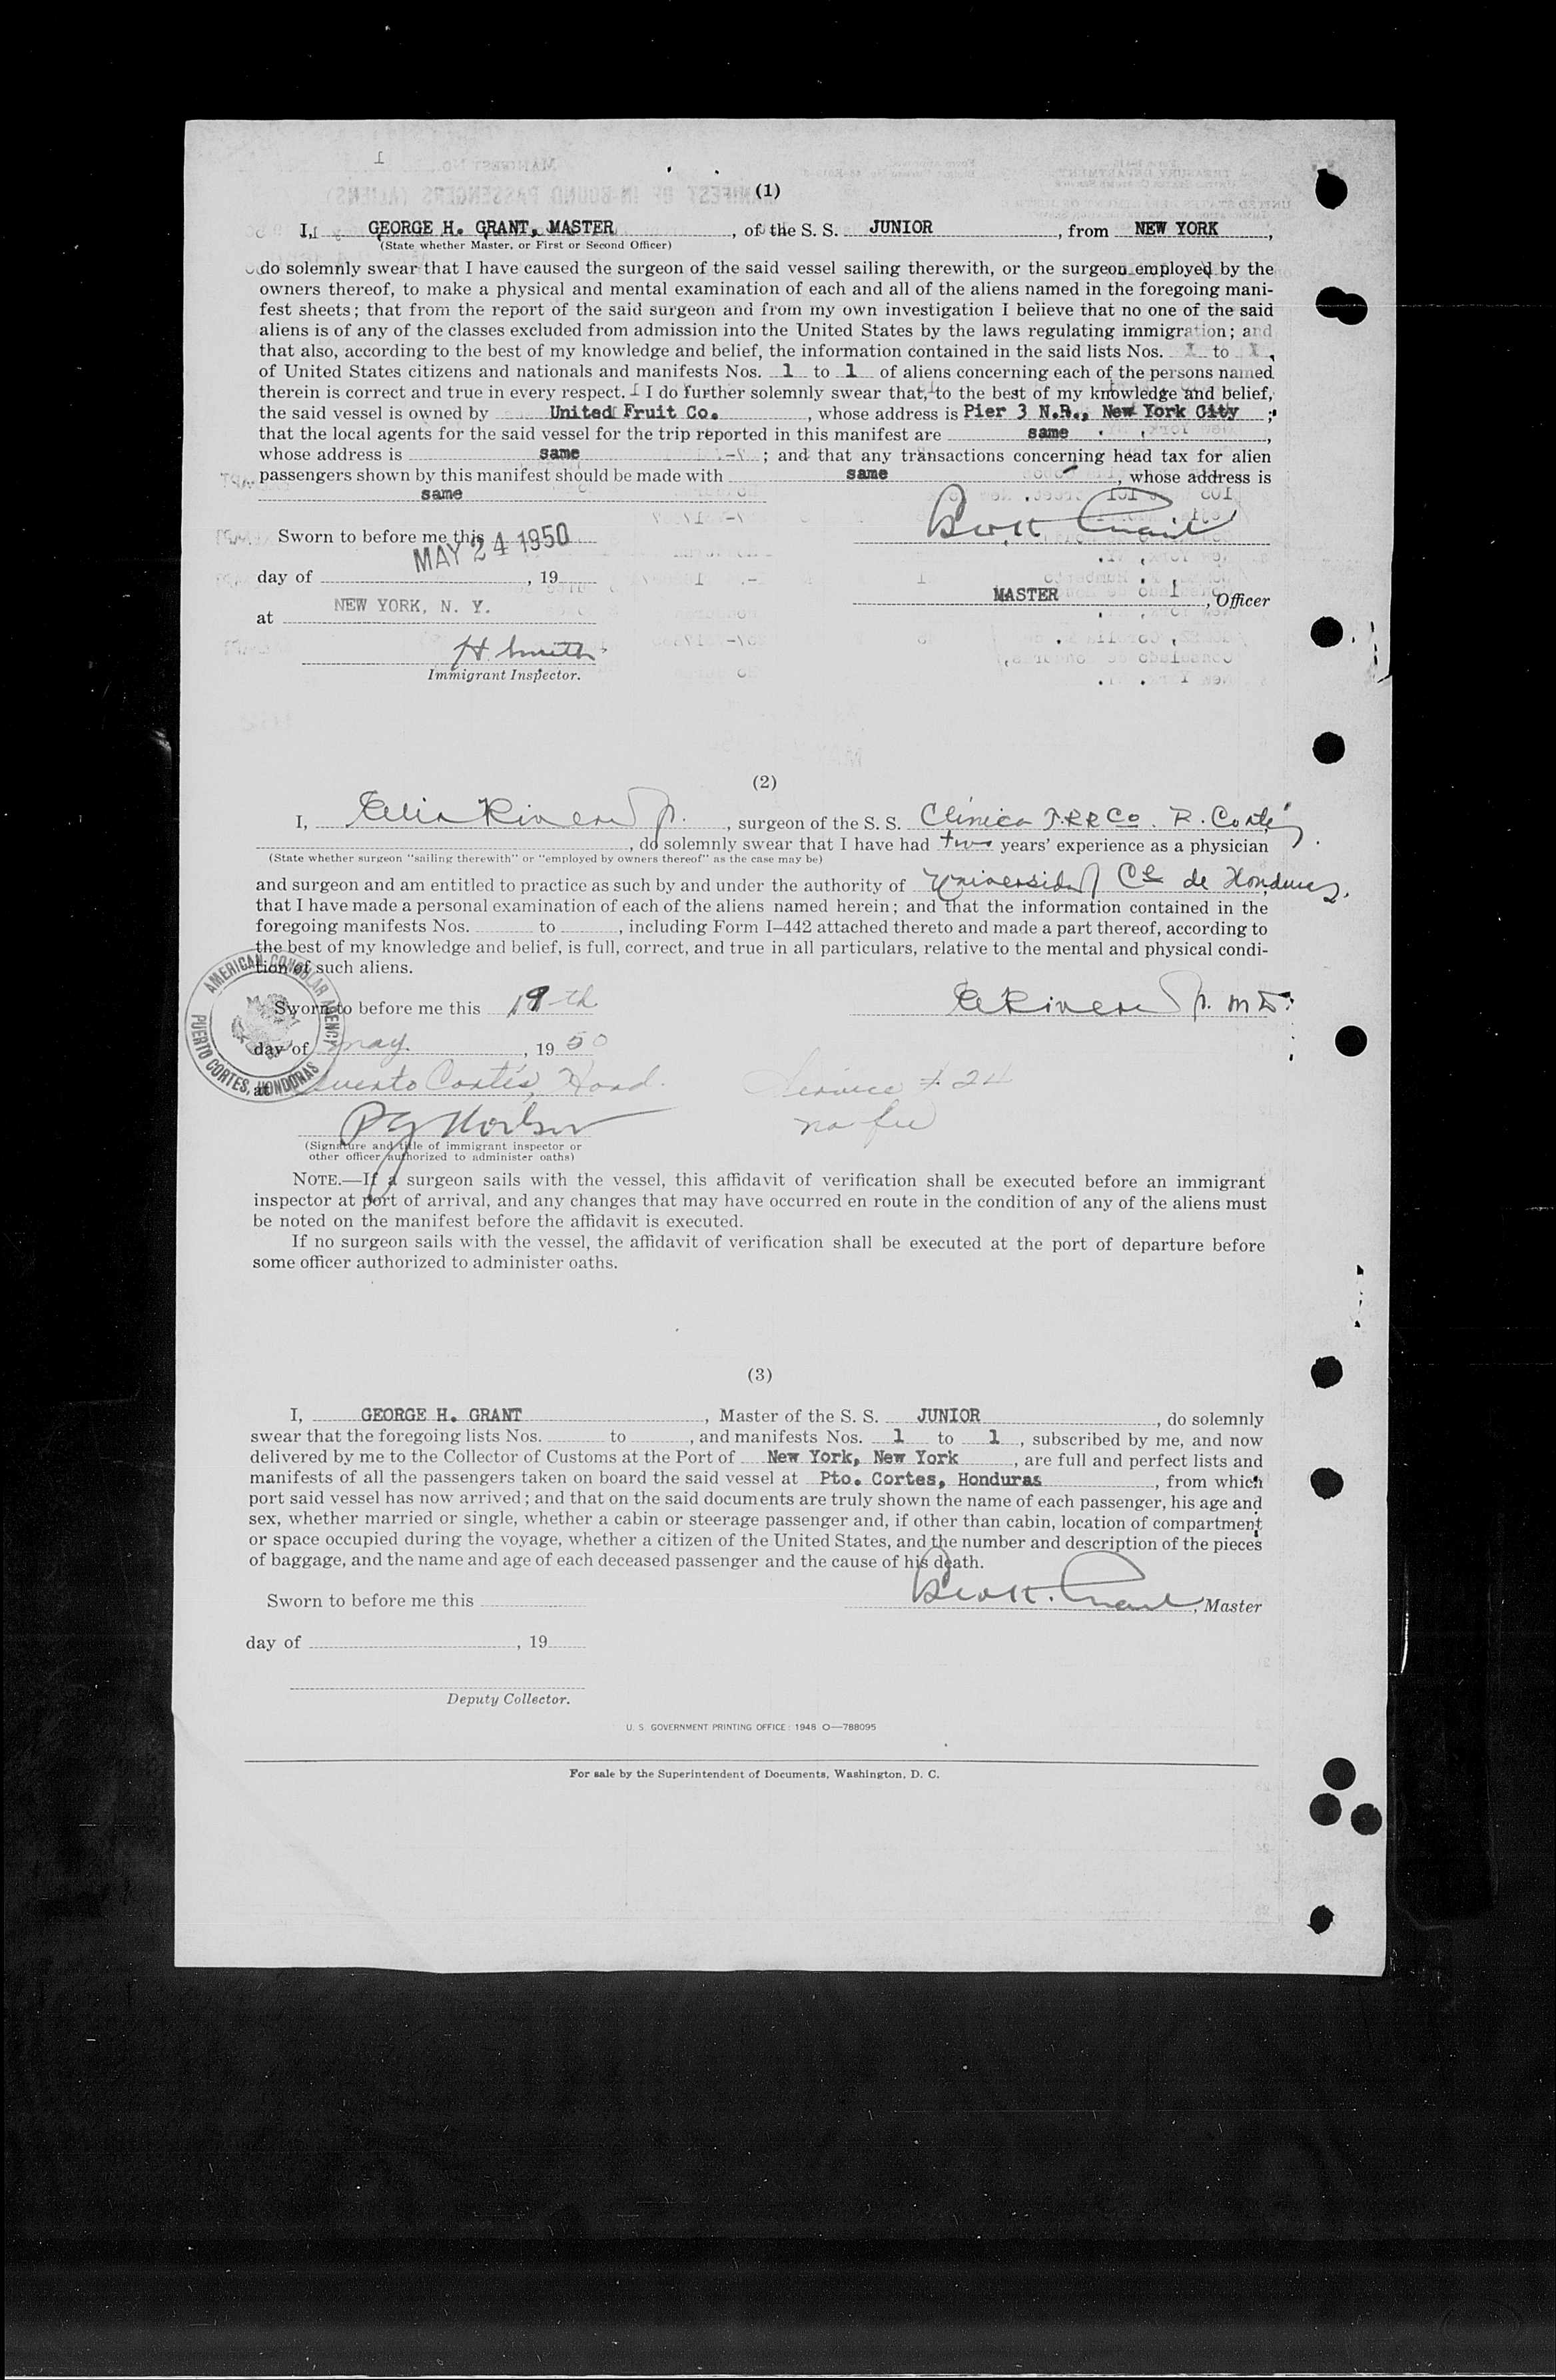 (1)
I, GEORGE H. GRANT, MASTER, of the S. S. JUNIOR, from NEW YORK,
(State whether Master, or First or Second Officer)
do solemnly swear that I have caused the surgeon of the said vessel sailing therewith, or the surgeon employed by the
owners thereof, to make a physical and mental examination of each and all of the aliens named in the foregoing mani-
fest sheets; that from the report of the said surgeon and from my own investigation I believe that no one of the said
aliens is of any of the classes excluded from admission into the United States by the laws regulating immigration; and
that also, according to the best of my knowledge and belief, the information contained in the said lists Nos. 1 to 1,
of United States citizens and nationals and manifests Nos. 1 to 1 of aliens concerning each of the persons named
therein is correct and true in every respect. I do further solemnly swear that, to the best of my knowledge and belief,
the said vessel is owned by United Fruit Co., whose address is Pier 3 N.R., New York City;
that the local agents for the said vessel for the trip reported in this manifest are same,
whose address is same; and that any transactions concerning head tax for alien
passengers shown by this manifest should be made with same, whose address is
same
Geo H Grant
Sworn to before me this
MAY 24 1950
day of , 19
MASTER, Officer
at NEW YORK, N. Y.
H. Smith
Immigrant Inspector.
(2)
I, Rivera Jr., surgeon of the S. S. Clinica T.RR Co. P. Cortés
, do solemnly swear that I have had two years' experience as a physician
(State whether surgeon "sailing therewith" or "employed by owners thereof" as the case may be)
and surgeon and am entitled to practice as such by and under the authority of Universidad Cl de Honduras,
that I have made a personal examination of each of the aliens named herein; and that the information contained in the
foregoing manifests Nos. to , including Form I–442 attached thereto and made a part thereof, according to
the best of my knowledge and belief, is full, correct, and true in all particulars, relative to the mental and physical condi-
tion of such aliens.
AMERICAN CONSULAR AGENCY
PUERTO CORTES, HONDURAS
Sworn to before me this 19th
Rivera Jr. M D.
day of May, 1950
at Puerto Cortés, Hond.
Service # 24
no fee
(Signature and title of immigrant inspector or
other officer authorized to administer oaths)
NOTE.—If a surgeon sails with the vessel, this affidavit of verification shall be executed before an immigrant
inspector at port of arrival, and any changes that may have occurred en route in the condition of any of the aliens must
be noted on the manifest before the affidavit is executed.
If no surgeon sails with the vessel, the affidavit of verification shall be executed at the port of departure before
some officer authorized to administer oaths.
(3)
I, GEORGE H. GRANT, Master of the S. S. JUNIOR, do solemnly
swear that the foregoing lists Nos. to , and manifests Nos. 1 to 1, subscribed by me, and now
delivered by me to the Collector of Customs at the Port of New York, New York, are full and perfect lists and
manifests of all the passengers taken on board the said vessel at Pto. Cortes, Honduras, from which
port said vessel has now arrived; and that on the said documents are truly shown the name of each passenger, his age and
sex, whether married or single, whether a cabin or steerage passenger and, if other than cabin, location of compartment
or space occupied during the voyage, whether a citizen of the United States, and the number and description of the pieces
of baggage, and the name and age of each deceased passenger and the cause of his death.
Sworn to before me this
Geo H. Grant, Master
day of , 19
Deputy Collector.
U. S. GOVERNMENT PRINTING OFFICE: 1948 O—788095
For sale by the Superintendent of Documents, Washington, D. C.